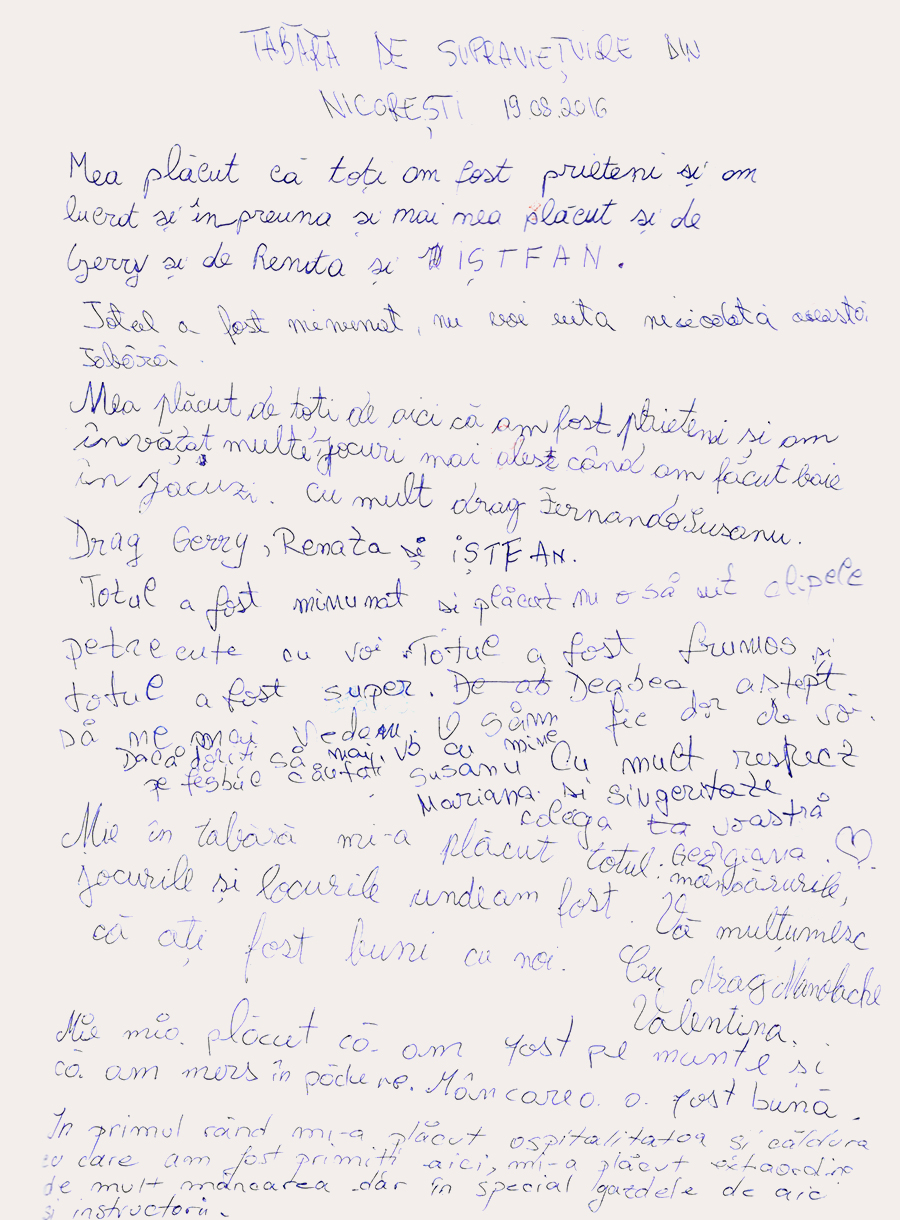 TABĂRA DE SUPRAVIEȚUIRE DIN
NICOREȘTI 19.08.2016
Mea plăcut că toți am fost prieteni și am
lucrat și înpreuna și mai mea plăcut și de
Gerry și de Renata și IȘTFAN.
Totul a fost minunat, nu voi uita niciodată această
tabără.
Mea plăcut de toți de aici că am fost prieteni și am
învățat multe jocuri mai ales când am făcut baie
în jacuzi. Cu mult drag Fernando Susanu.
Drag Gerry, Renata și IȘTFAN.
Totul a fost minunat si plăcut nu o să uit clipele
petrecute cu voi. Totul a fost frumos și
totul a fost super. De ab Deabea astept
să ne mai vedem. O sămi fie dor de voi.
Dacă doriti să mai vb cu mine
pe fesbuc căutați Susanu Cu mult respect
Mariana. si singeritate
colega ta voastră
Mie în tabără mi-a plăcut totul. Georgiana. ♡
jocurile și locurile undeam fost. mâncărurile,
că ați fost buni cu noi. Vă mulțumesc
Cu drag Manolache
Valentina.
Mie mia plăcut că am fost pe munte si
că am mers în pădure. Mâncarea a fost bună.
În primul rând mi-a plăcut ospitalitatea si căldura
cu care am fost primiți aici, mi-a plăcut
de mult mâncarea dar în special gazdele de aic
si instructorii.